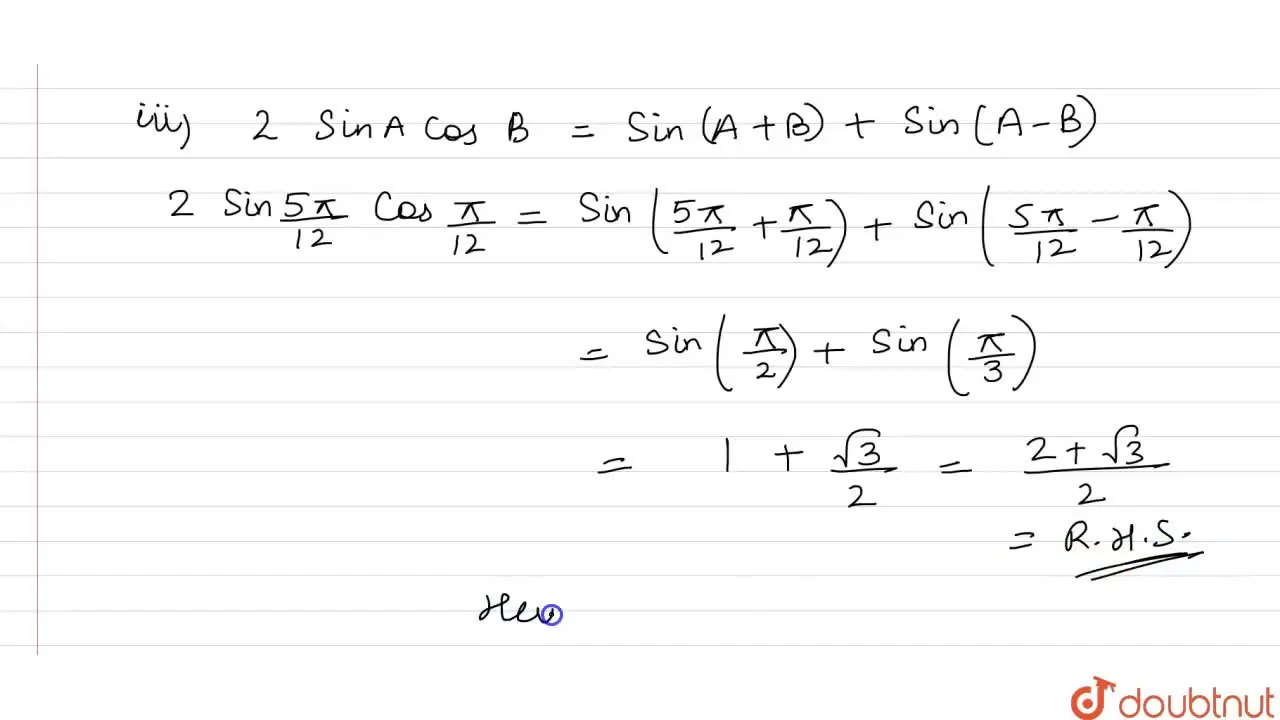 iii) 2 Sin A Cos B = Sin(A+B) + Sin(A-B)
2 Sin 5π/12 Cos π/12 = Sin(5π/12 + π/12) + Sin(5π/12 - π/12)
= Sin(π/2) + Sin(π/3)
= 1 + √3/2 = 2+√3/2
= R.H.S.
Hen
doubtnut